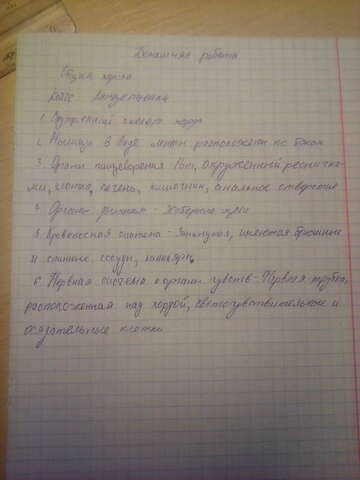 Домашняя работа.
Общая хар-ка
Класс Ланцетники
1. Внутренний скелет хорда
2. Мышцы в виде лент расположены по бокам
3. Органы пищеворения Рот, окружённый ресничка-
ми, глотка, печень, кишечник, анальное отверстие
4. Органы дыхания - Жаберные щели
5. Кровеносная система - Замкнутая, имеются брюшные
и спинные, сосуды, капилляры.
6. Нервная система и органы чувств - Нервная трубка,
расположенная над хордой, светочувствительные и
осязательные клетки